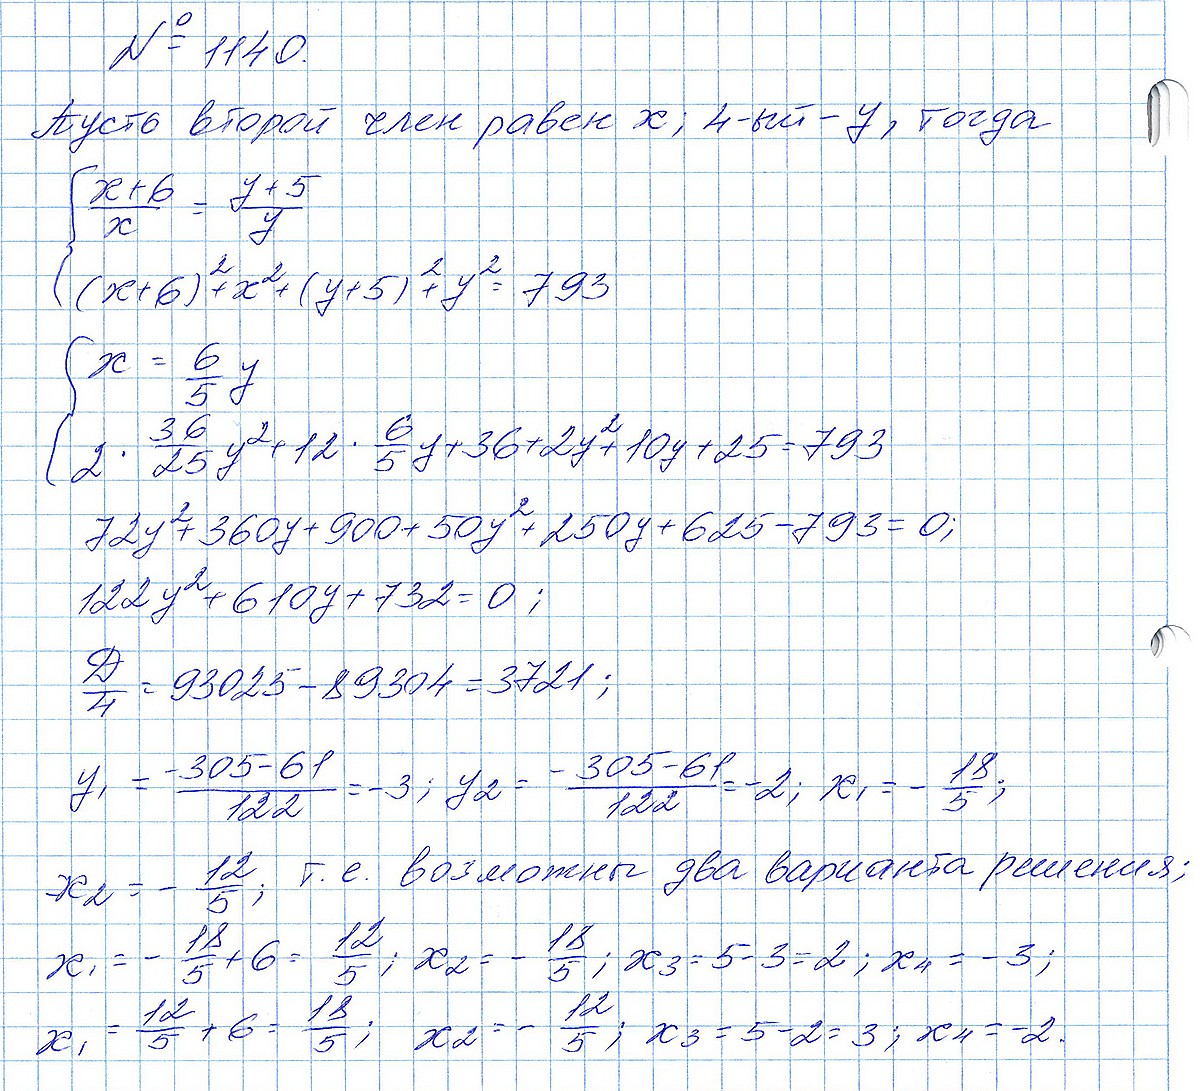 № 1140.
Пусть второй член равен x; 4-ый - y, тогда
{ (x+6)/x = (y+5)/y
(x+6)²+x²+(y+5)²+y² = 793
{ x = 6/5 y
2 · 36/25 y² + 12 · 6/5 y + 36 + 2y² + 10y + 25 = 793
72y² + 360y + 900 + 50y² + 250y + 625 - 793 = 0;
122y² + 610y + 732 = 0;
D/4 = 93025 - 89304 = 3721;
y₁ = (-305-61)/122 = -3; y₂ = (-305-61)/122 = -2; x₁ = -18/5;
x₂ = -12/5; т.е. возможны два варианта решения;
x₁ = -18/5 + 6 = 12/5; x₂ = -18/5; x₃ = 5-3 = 2; x₄ = -3;
x₁ = 12/5 + 6 = 18/5; x₂ = -12/5; x₃ = 5-2 = 3; x₄ = -2.